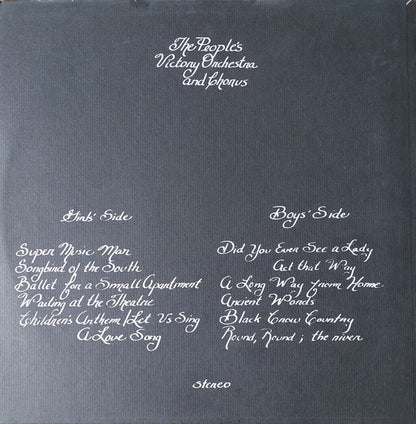 The People's
Victory Orchestra
and Chorus
Girls' Side
Super Music Man
Songbird of the South
Ballet for a Small Apartment
Waiting at the Theatre
Children's Anthem / Let Us Sing
A Love Song
Boys' Side
Did You Ever See a Lady
Act that Way
A Long Way from Home
Ancient Words
Black Crow Country
Round, Round ; the river
stereo